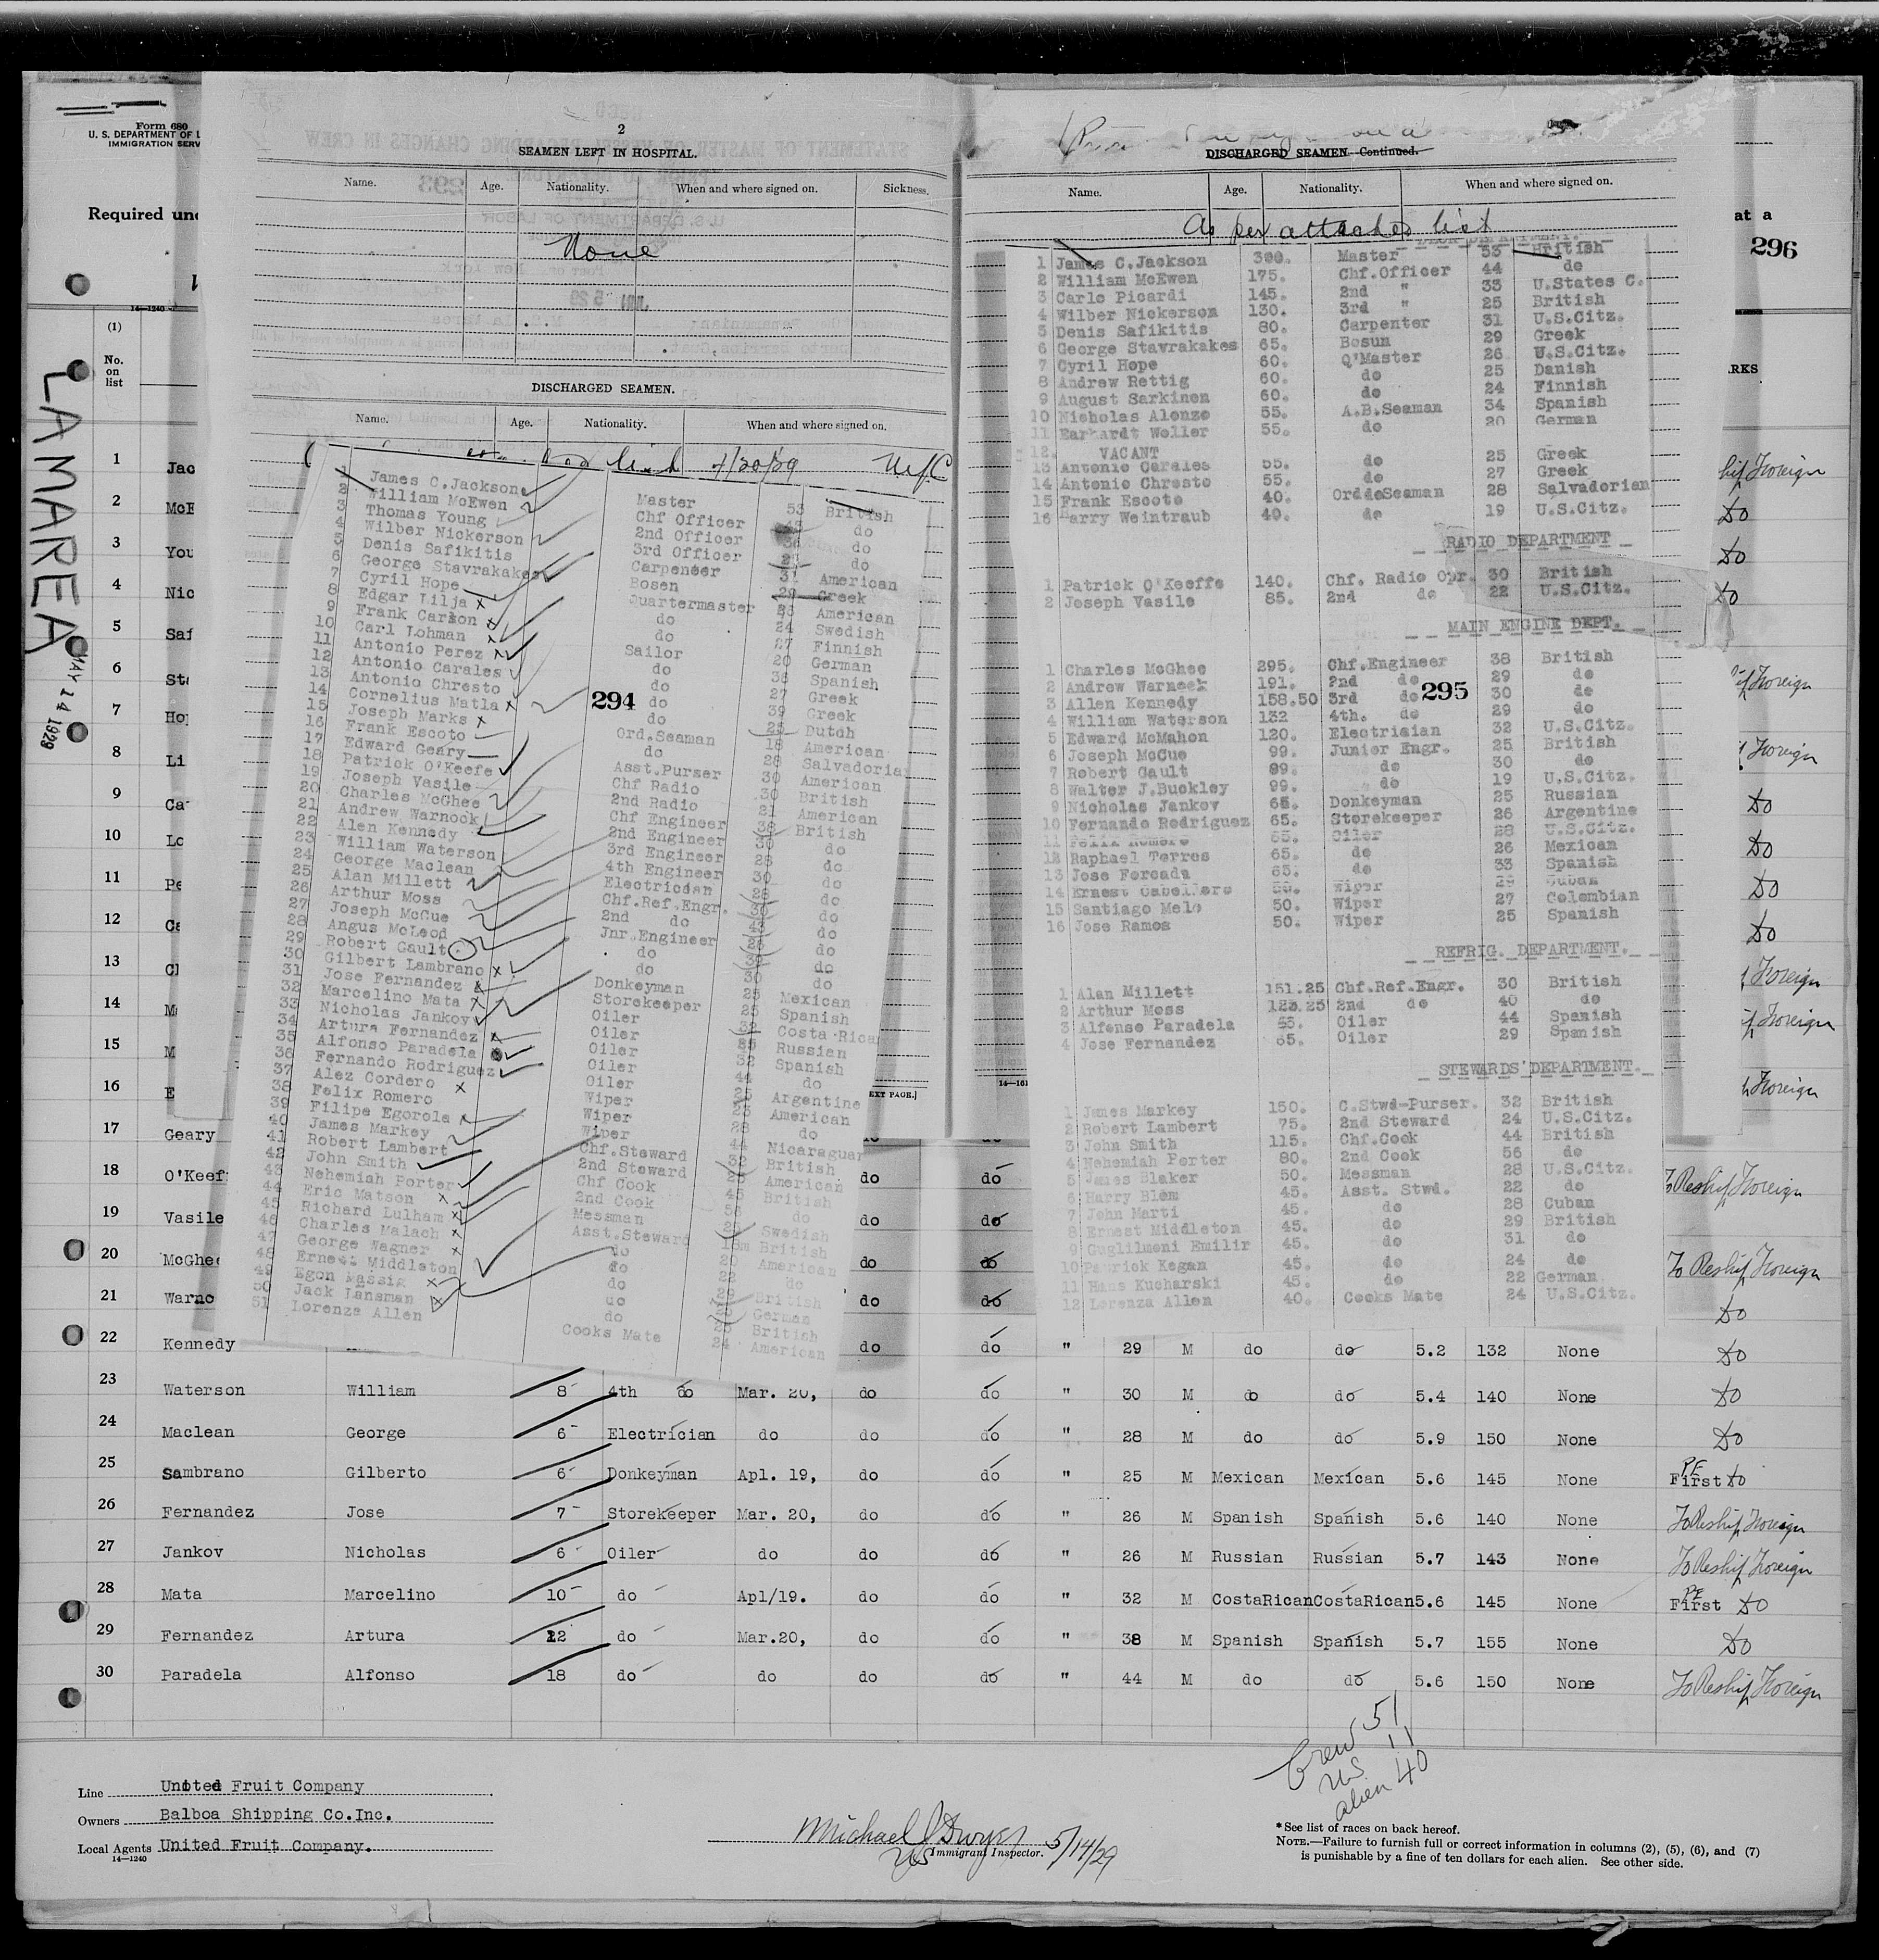 Form 680
U. S. DEPARTMENT OF L
IMMIGRATION SERV
Required und
14—1240
(1)
No.
on
list
LA MAREA
MAY 14 1929
at a
296
RKS
2
SEAMEN LEFT IN HOSPITAL.
Name. Age. Nationality. When and where signed on. Sickness.
None
DISCHARGED SEAMEN.
Name. Age. Nationality. When and where signed on.
4/30/29
1 James C.Jackson Master 53 British
2 William McEwen Chf Officer 43 do
3 Thomas Young 2nd Officer 36 do
4 Wilber Nickerson 3rd Officer do
5 Denis Safikitis Carpenter 31 American
6 George Stavrakakes Bosen 29 Greek
7 Cyril Hope Quartermaster American
8 Edgar Lilja do 24 Swedish
9 Frank Carlson do 27 Finnish
10 Carl Lohman Sailor 20 German
11 Antonio Perez do 36 Spanish
12 Antonio Carales do 27 Greek
13 Antonio Chresto do 39 Greek
14 Cornelius Matla do 25 Dutch
15 Joseph Marks Ord.Seaman 18 American
16 Frank Escoto do 28 Salvadoria
17 Edward Geary Asst.Purser 30 American
18 Patrick O'Keefe Chf Radio 30 British
19 Joseph Vasile 2nd Radio 21 American
20 Charles McGhee Chf Engineer 38 British
21 Andrew Warnock 2nd Engineer 30 do
22 Alen Kennedy 3rd Engineer 28 do
23 William Waterson 4th Engineer 30 do
24 George Maclean Electrician 28 do
25 Alan Millett Chf.Ref.Engr. 30 do
26 Arthur Moss 2nd do do
27 Joseph McCue Jnr.Engineer do
28 Angus McLeod do do
29 Robert Gault do 30 do
30 Gilbert Lambrano Donkeyman 25 Mexican
31 Jose Fernandez Storekeeper 25 Spanish
32 Marcelino Mata Oiler 32 Costa Rica
33 Nicholas Jankov Oiler Russian
34 Artura Fernandez Oiler 32 Spanish
35 Alfonso Paradela Oiler 44 do
36 Fernando Rodriguez Oiler 25 Argentine
37 Alez Cordero Wiper 23 American
38 Felix Romero Wiper 28 do
39 Filipe Egorola Wiper 44 Nicaraguan
40 James Markey Chf.Steward 32 British
41 Robert Lambert 2nd Steward American
42 John Smith Chf Cook 45 British
43 Nehemiah Porter 2nd Cook 56 do
44 Eric Matson Messman Swedish
45 Richard Lulham Asst.Steward 18 British
46 Charles Malach do 20 American
47 George Wagner do 22 do
48 Ernest Middleton do 29 British
49 Egon Massig do German
50 Jack Lansman do British
51 Lorenza Allen Cooks Mate 24 American
294
EXT PAGE.]
DISCHARGED SEAMEN—Continued.
Name. Age. Nationality. When and where signed on.
As per attached list
1 James C.Jackson 300. Master 53 British
2 William McEwen 175. Chf.Officer 44 do
3 Carlo Picardi 145. 2nd " 33 U.States C.
4 Wilber Nickerson 130. 3rd " 25 British
5 Denis Safikitis 80. Carpenter 31 U.S.Citz.
6 George Stavrakakes 65. Bosun 29 Greek
7 Cyril Hope 60. Q'Master 26 U.S.Citz.
8 Andrew Rettig 60. do 25 Danish
9 August Sarkinen 60. do 24 Finnish
10 Nicholas Alonzo 55. A.B.Seaman 34 Spanish
11 Earhardt Woller 55. do 20 German
12. VACANT
13 Antonio Carales 55. do 25 Greek
14 Antonio Chresto 55. do 27 Greek
15 Frank Escoto 40. OrddoSeaman 28 Salvadorian
16 Harry Weintraub 40. do 19 U.S.Citz.
RADIO DEPARTMENT
1 Patrick O'Keeffe 140. Chf. Radio Opr. 30 British
2 Joseph Vasile 85. 2nd do 22 U.S.Citz.
MAIN ENGINE DEPT.
1 Charles McGhee 295. Chf.Engineer 38 British
2 Andrew Warnock 191. 2nd do 29 do
3 Allen Kennedy 158.50 3rd do 30 do
295
4 William Waterson 132 4th. do 29 do
5 Edward McMahon 120. Electrisian 32 U.S.Citz.
6 Joseph McCue 99. Junior Engr. 25 British
7 Robert Gault 89. do 30 do
8 Walter J.Buckley 99. do 19 U.S.Citz.
9 Nicholas Jankov 65. Donkeyman 25 Russian
10 Fernando Rodriguez 65. Storekeeper 26 Argentine
11 Felix Romero 65. Oiler 28 U.S.Citz.
12 Raphael Torres 65. do 26 Mexican
13 Jose Forcada 65. do 33 Spanish
14 Ernest Cabellero 50. Wiper 25 Cuban
15 Santiago Melo 50. Wiper 27 Colombian
16 Jose Ramos 50. Wiper 25 Spanish
REFRIG. DEPARTMENT.
1 Alan Millett 151.25 Chf.Ref.Engr. 30 British
2 Arthur Moss 123.25 2nd do 40 do
3 Alfonso Paradela 65. Oiler 44 Spanish
4 Jose Fernandez 65. Oiler 29 Spanish
STEWARDS'DEPARTMENT.
1 James Markey 150. C.Stwd-Purser. 32 British
2 Robert Lambert 75. 2nd Steward 24 U.S.Citz.
3 John Smith 115. Chf.Cook 44 British
4 Nehemiah Porter 80. 2nd Cook 56 do
5 James Blaker 50. Messman 28 U.S.Citz.
6 Harry Blom 45. Asst. Stwd. 22 do
7 John Marti 45. do 28 Cuban
8 Ernest Middleton 45. do 29 British
9 Guglilmoni Emilir 45. do 31 do
10 Patrick Kegan 45. do 24 do
11 Hans Kucharski 45. do 22 German
12 Lorenza Allen 40. Cooks Mate 24 U.S.Citz.
1 Jac hip Foreign
2 McE Do
3 You Do
4 Nic Do
5 Saf
6 Ste Foreign
7 Hop
8 Li Foreign
9 Ca Do
10 Lo Do
11 Pe Do
12 Ca Do
13 Ch Foreign
14 M Foreign
15 M
16 E Foreign
17 Geary do do
18 O'Keef do do To Reship Foreign
19 Vasile do do
20 McGhee do do To Reship Foreign
21 Warno do do Do
22 Kennedy do do " 29 M do do 5.2 132 None Do
23 Waterson William 8 4th do Mar. 20, do do " 30 M do do 5.4 140 None Do
24 Maclean George 6 Electrician do do do " 28 M do do 5.9 150 None Do
25 Sambrano Gilberto 6 Donkeyman Apl. 19, do do " 25 M Mexican Mexican 5.6 145 None First PE Do
26 Fernandez Jose 7 Storekeeper Mar. 20, do do " 26 M Spanish Spanish 5.6 140 None To Reship Foreign
27 Jankov Nicholas 6 Oiler do do do " 26 M Russian Russian 5.7 143 None To Reship Foreign
28 Mata Marcelino 10 do Apl/19. do do " 32 M CostaRican CostaRican 5.6 145 None First PE Do
29 Fernandez Artura 12 do Mar.20, do do " 38 M Spanish Spanish 5.7 155 None Do
30 Paradela Alfonso 18 do do do do " 44 M do do 5.6 150 None To Reship Foreign
Crew 51
US 11
alien 40
Line United Fruit Company
Owners Balboa Shipping Co.Inc.
Local Agents United Fruit Company.
14—1240
Michael J Dwyer 5/14/29
US Immigrant Inspector.
*See list of races on back hereof.
NOTE.—Failure to furnish full or correct information in columns (2), (5), (6), and (7)
is punishable by a fine of ten dollars for each alien. See other side.